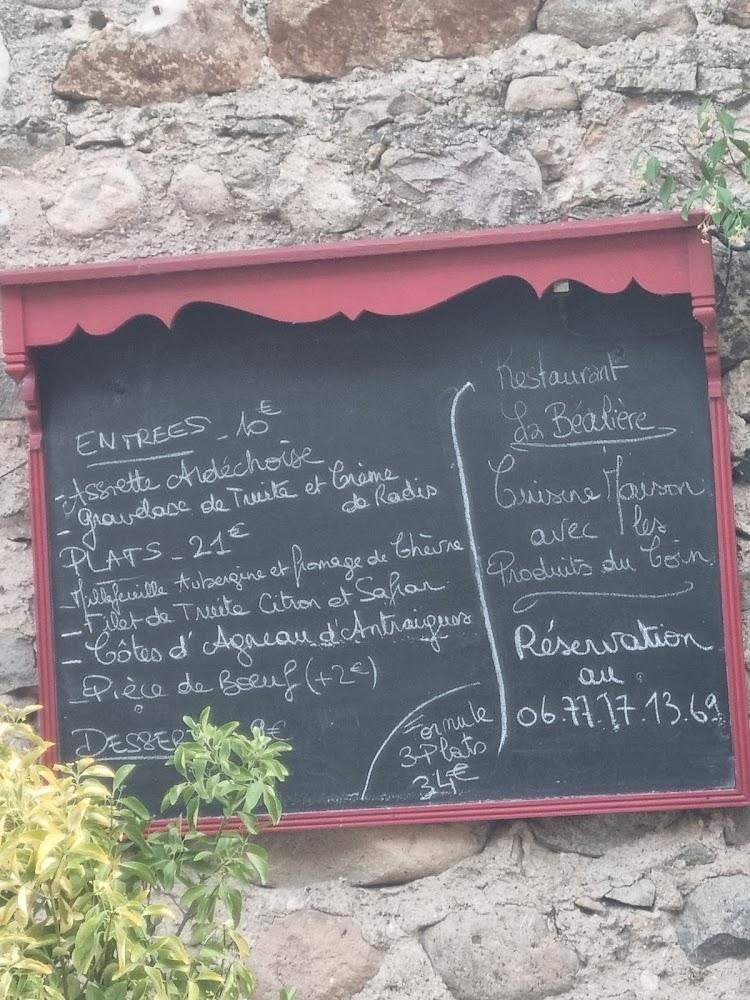 ENTREES - 10€
- Assiette Ardéchoise
- Gravelase de Truite et Crème
de Radis
PLATS - 21€
- Millefeuille Aubergine et fromage de Chèvre
- Filet de Truite Citron et Safran
- Côtes d'Agneau d'Antraigues
- Pièce de Boeuf (+2€)
Formule
3 Plats
34€
Restaurant
La Béalière
Cuisine Maison
avec les
Produits du Coin
Réservation
au
06.77.17.13.69